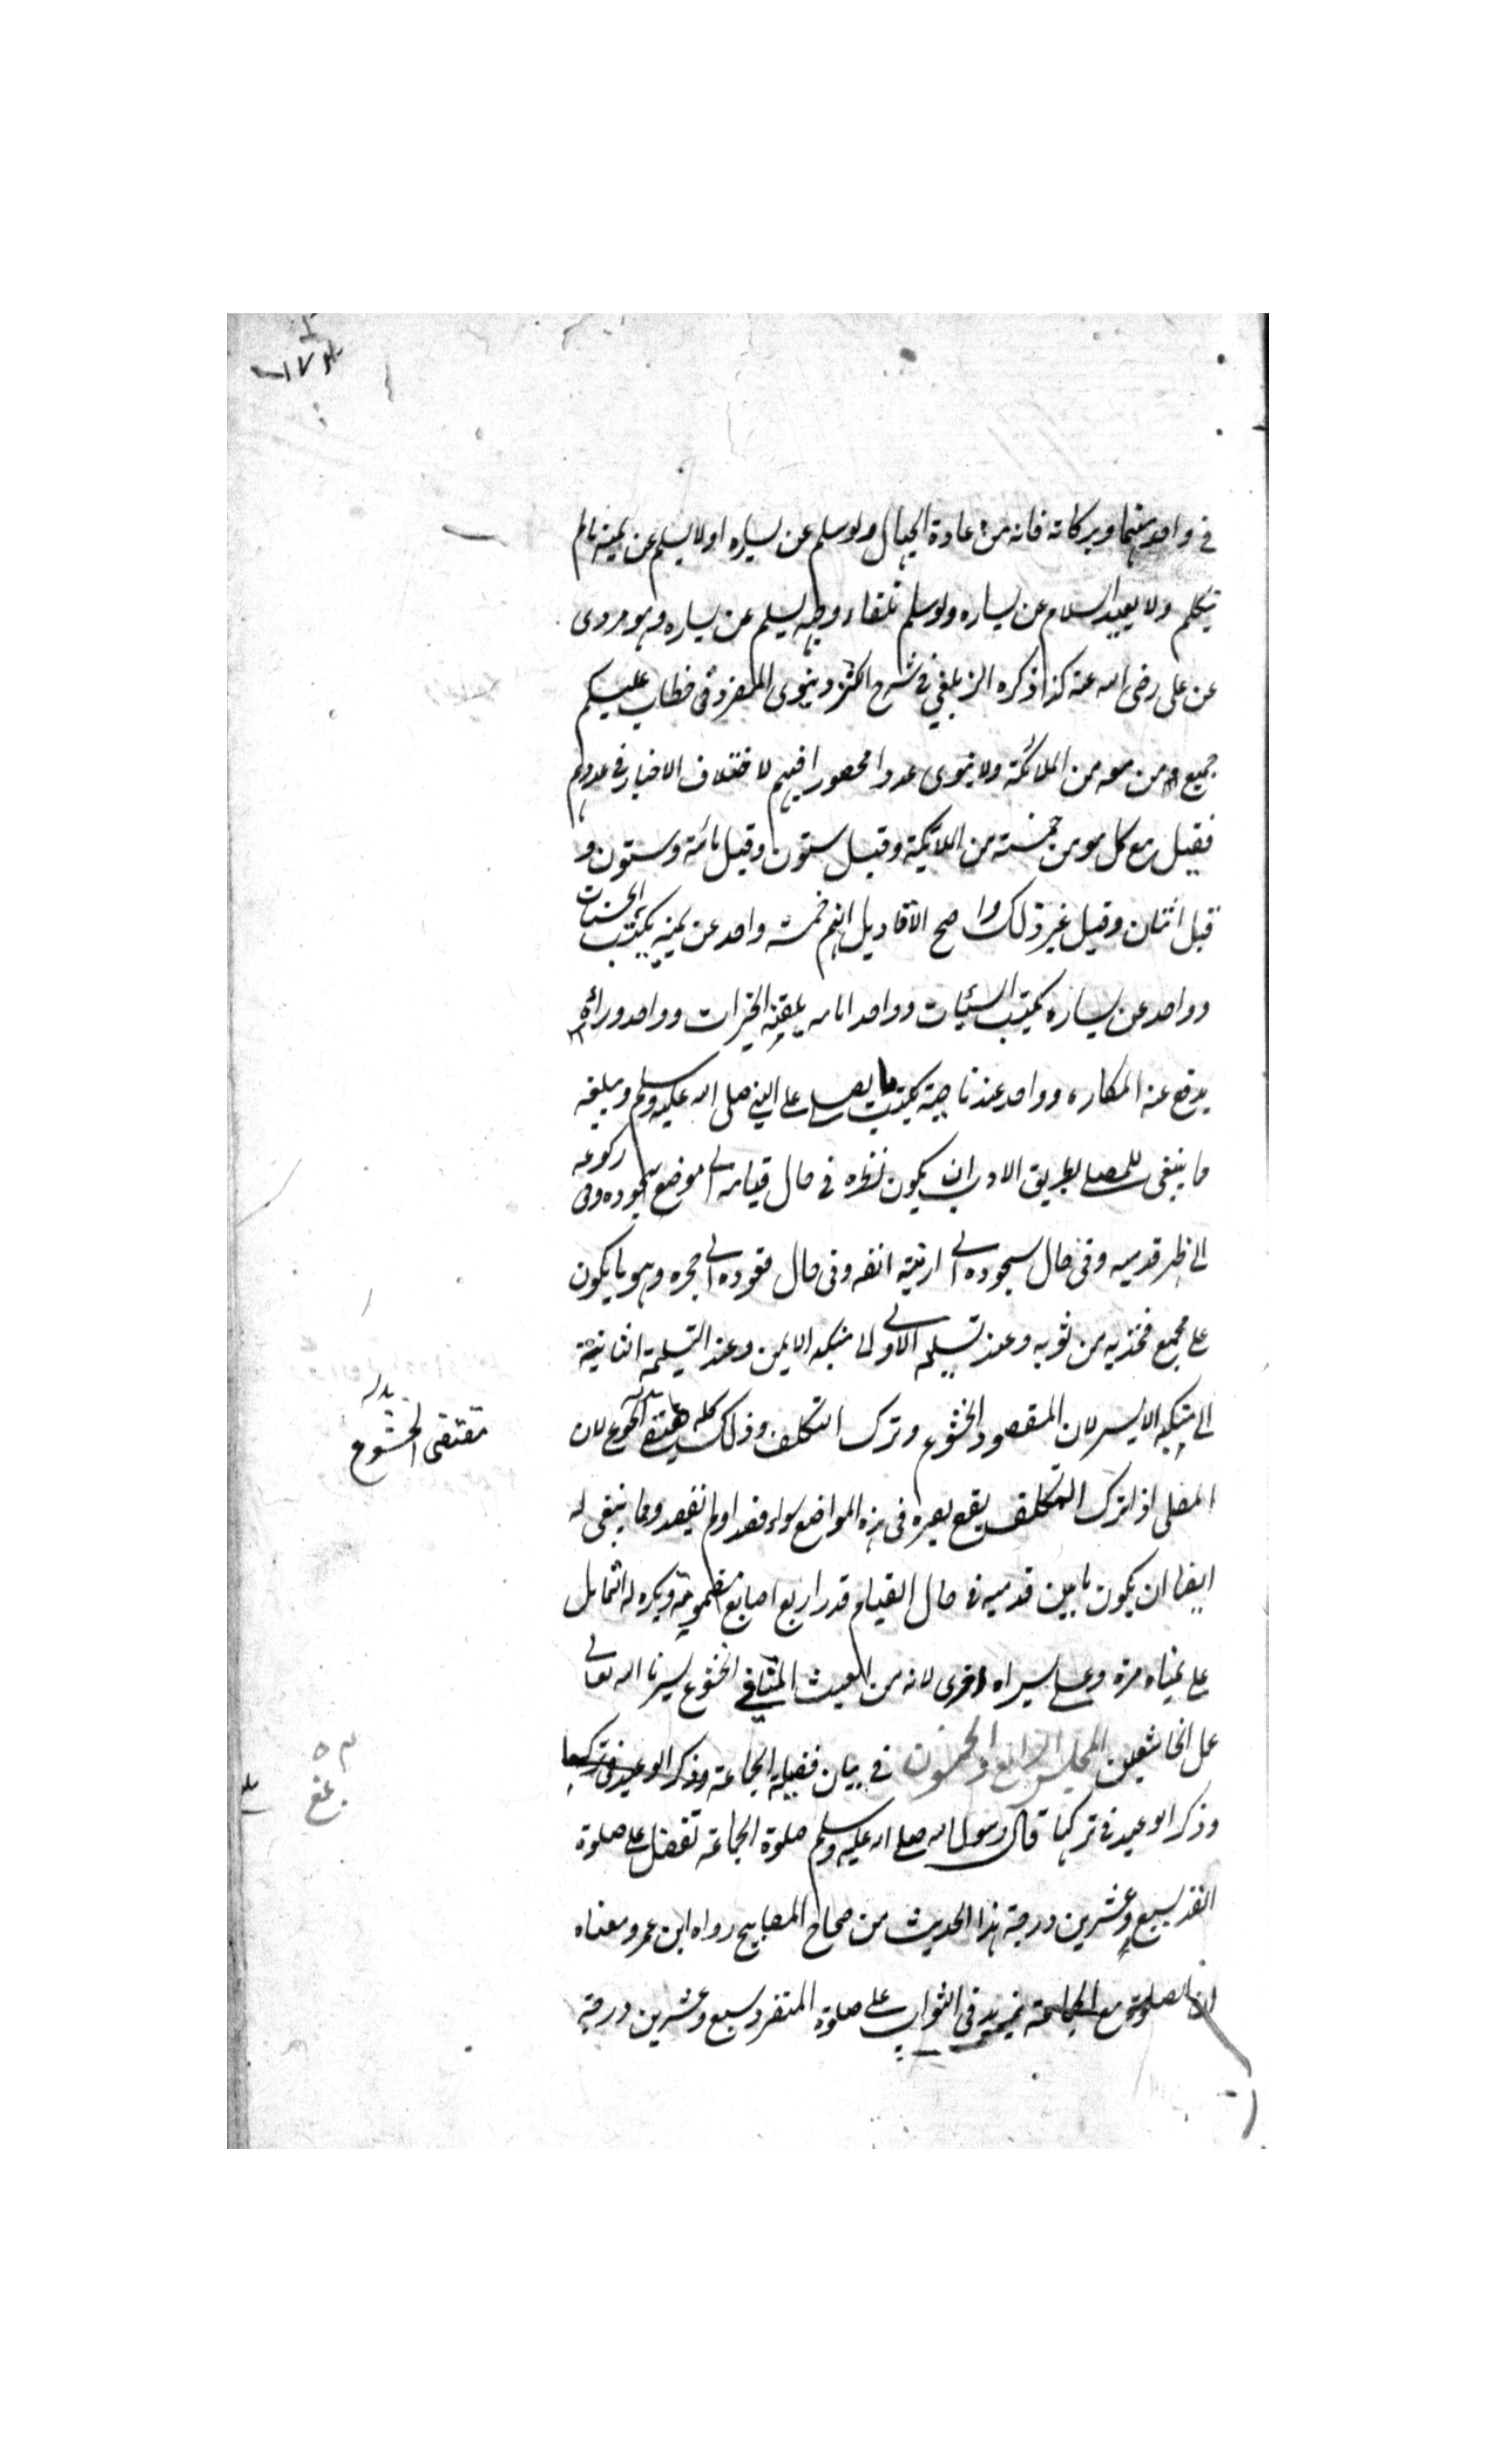 في واحد منهما وبركاته فانه من عادة الجهال ولو سلم عن يساره اولا يسلم عن يمينه ما لم
يتكلم ولا يعيد السلام عن يساره ولو سلم تلقاء وجهه يسلم عن يساره وهو مروى
عن على رضى الله عنه كذا ذكره الزيلعي في شرح الكنز وينوى المنفرد فى خطاب عليكم
جميع من معه من الملائكة ولا ينوى عددا محصورا فيهم لاختلاف الاخبار في عددهم
فقيل مع كل مومن خمسة من الملائكة وقيل ستون وقيل مائة وستون و
قيل اثنان وقيل غير ذلك واصح الاقاويل انهم خمسة واحد عن يمينه يكتب الحسنات
وواحد عن يساره يكتب السيئات وواحد امامه يلقنه الخيرات وواحد ورائه
يدفع عنه المكاره وواحد عند ناصية يكتب ما يصلى على النبي صلى الله عليه وسلم ويبلغه
ما ينبغى للمصلى بطريق الادب ان يكون نظره في حال قيامه الى موضع سجوده وفى ركوعه
الى ظهر قدميه وفى حال سجوده الى ارنبة انفه وفى حال قعوده الى حجره وهو ما يكون
على مجمع فخذيه من ثوبه وعند تسليمه الاولى الى منكبه الايمن وعند التسليمة الثانية
الى منكبه الايسر لان المقصود الخشوع وترك التكلف وذلك كله لان
مقتضى الخشوع
بدله
المصلى اذا ترك التكلف يقع بصره فى هذه المواضع سواء قصد او لم يقصد ومما ينبغى له
ايضا ان يكون ما بين قدميه في حال القيام قدر اربع اصابع مضمومة ويكره له التمايل
على يمناه مرة وعلى يسراه اخرى لانه من العبث المنافي الخشوع يسرنا الله تعالى
عمل الخاشعين المجلس الرابع والخمسون في بيان فضيلة الجماعة وذكر الوعيد في تركها
وذكر الوعيد في تركها قال رسول الله صلى الله عليه وسلم صلوة الجماعة تفضل على صلوة
الفذ بسبع وعشرين درجة هذا الحديث من صحاح المصابيح رواه ابن عمر ومعناه
ان الصلوة مع الجماعة يزيد فى الثواب على صلوة المنفرد سبع وعشرين درجة